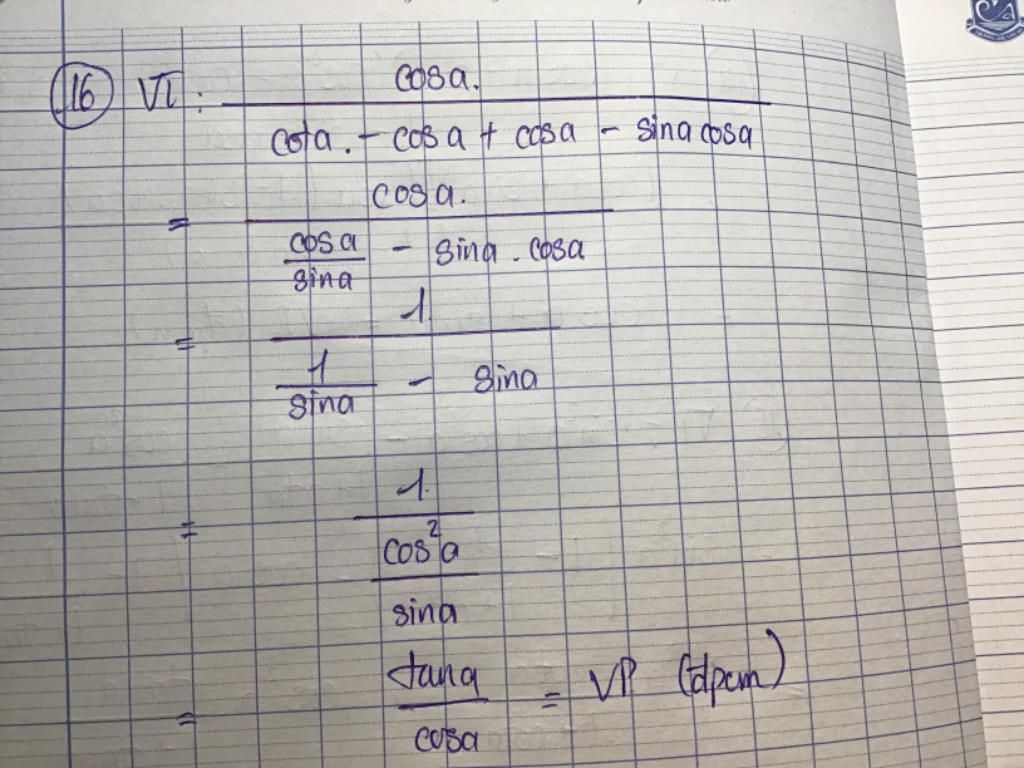 16 VT: cosa.
cota. - cosa + cosa - sina cosa
= cosa.
cosa/sina - sina . cosa
= 1
1/sina - sina
= 1.
cos²a
sina
= tana/cosa = VP (đpcm)